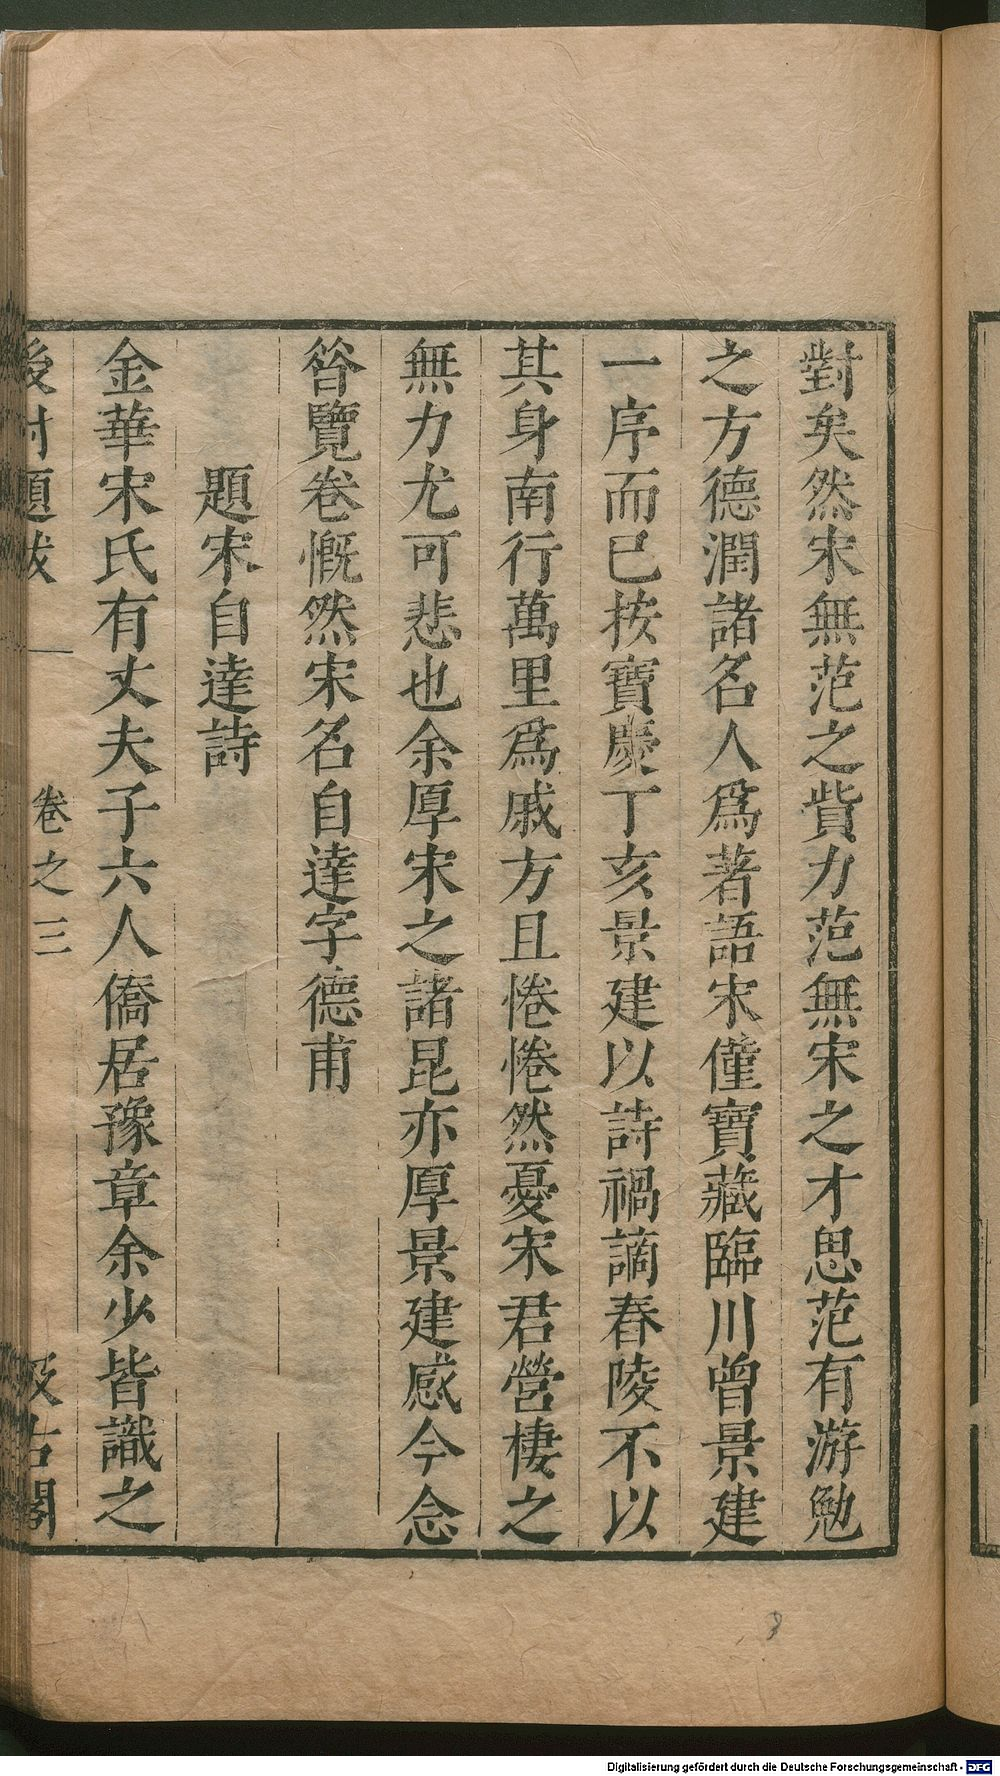 對矣然宋無范之貲力范無宋之才思范有游勉
之方德潤諸名人爲著語宋僅寶藏臨川曾景建
一序而已按寶慶丁亥景建以詩禍謫舂陵不以
其身南行萬里爲戚方且惓惓然憂宋君營棲之
無力尤可悲也余厚宋之諸昆亦厚景建感今念
昝覽卷慨然宋名自達字德甫
題宋自達詩
金華宋氏有丈夫子六人僑居豫章余少皆識之
後村題跋
卷之三
汲古閣
3
Digitalisierung gefördert durch die Deutsche Forschungsgemeinschaft - DFG